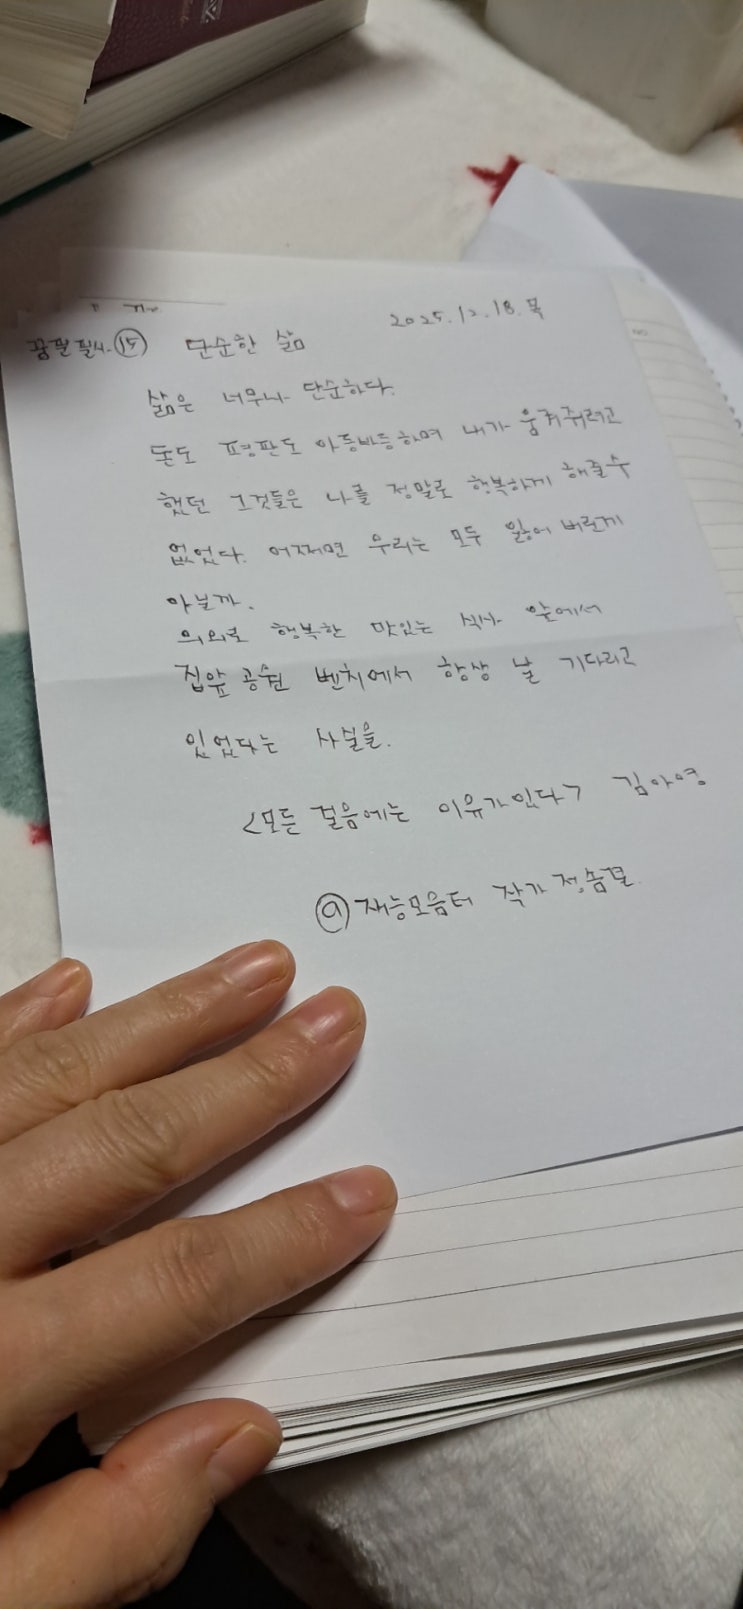 2025.12.18.목
꿈필필사.⑮ 단순한 삶
삶은 너무나 단순하다.
돈도 평판도 아등바등하며 내가 움켜쥐려고
했던 그것들은 나를 정말로 행복하게 해줄수
없었다. 어쩌면 우리는 모두 잃어 버린게
아닐까.
의외로 행복한 맛있는 식사 앞에서
집앞 공원 벤치에서 항상 날 기다리고
있었다는 사실을.
<모든 걸음에는 이유가있다> 김아영
@재능모음터 작가 정솜결